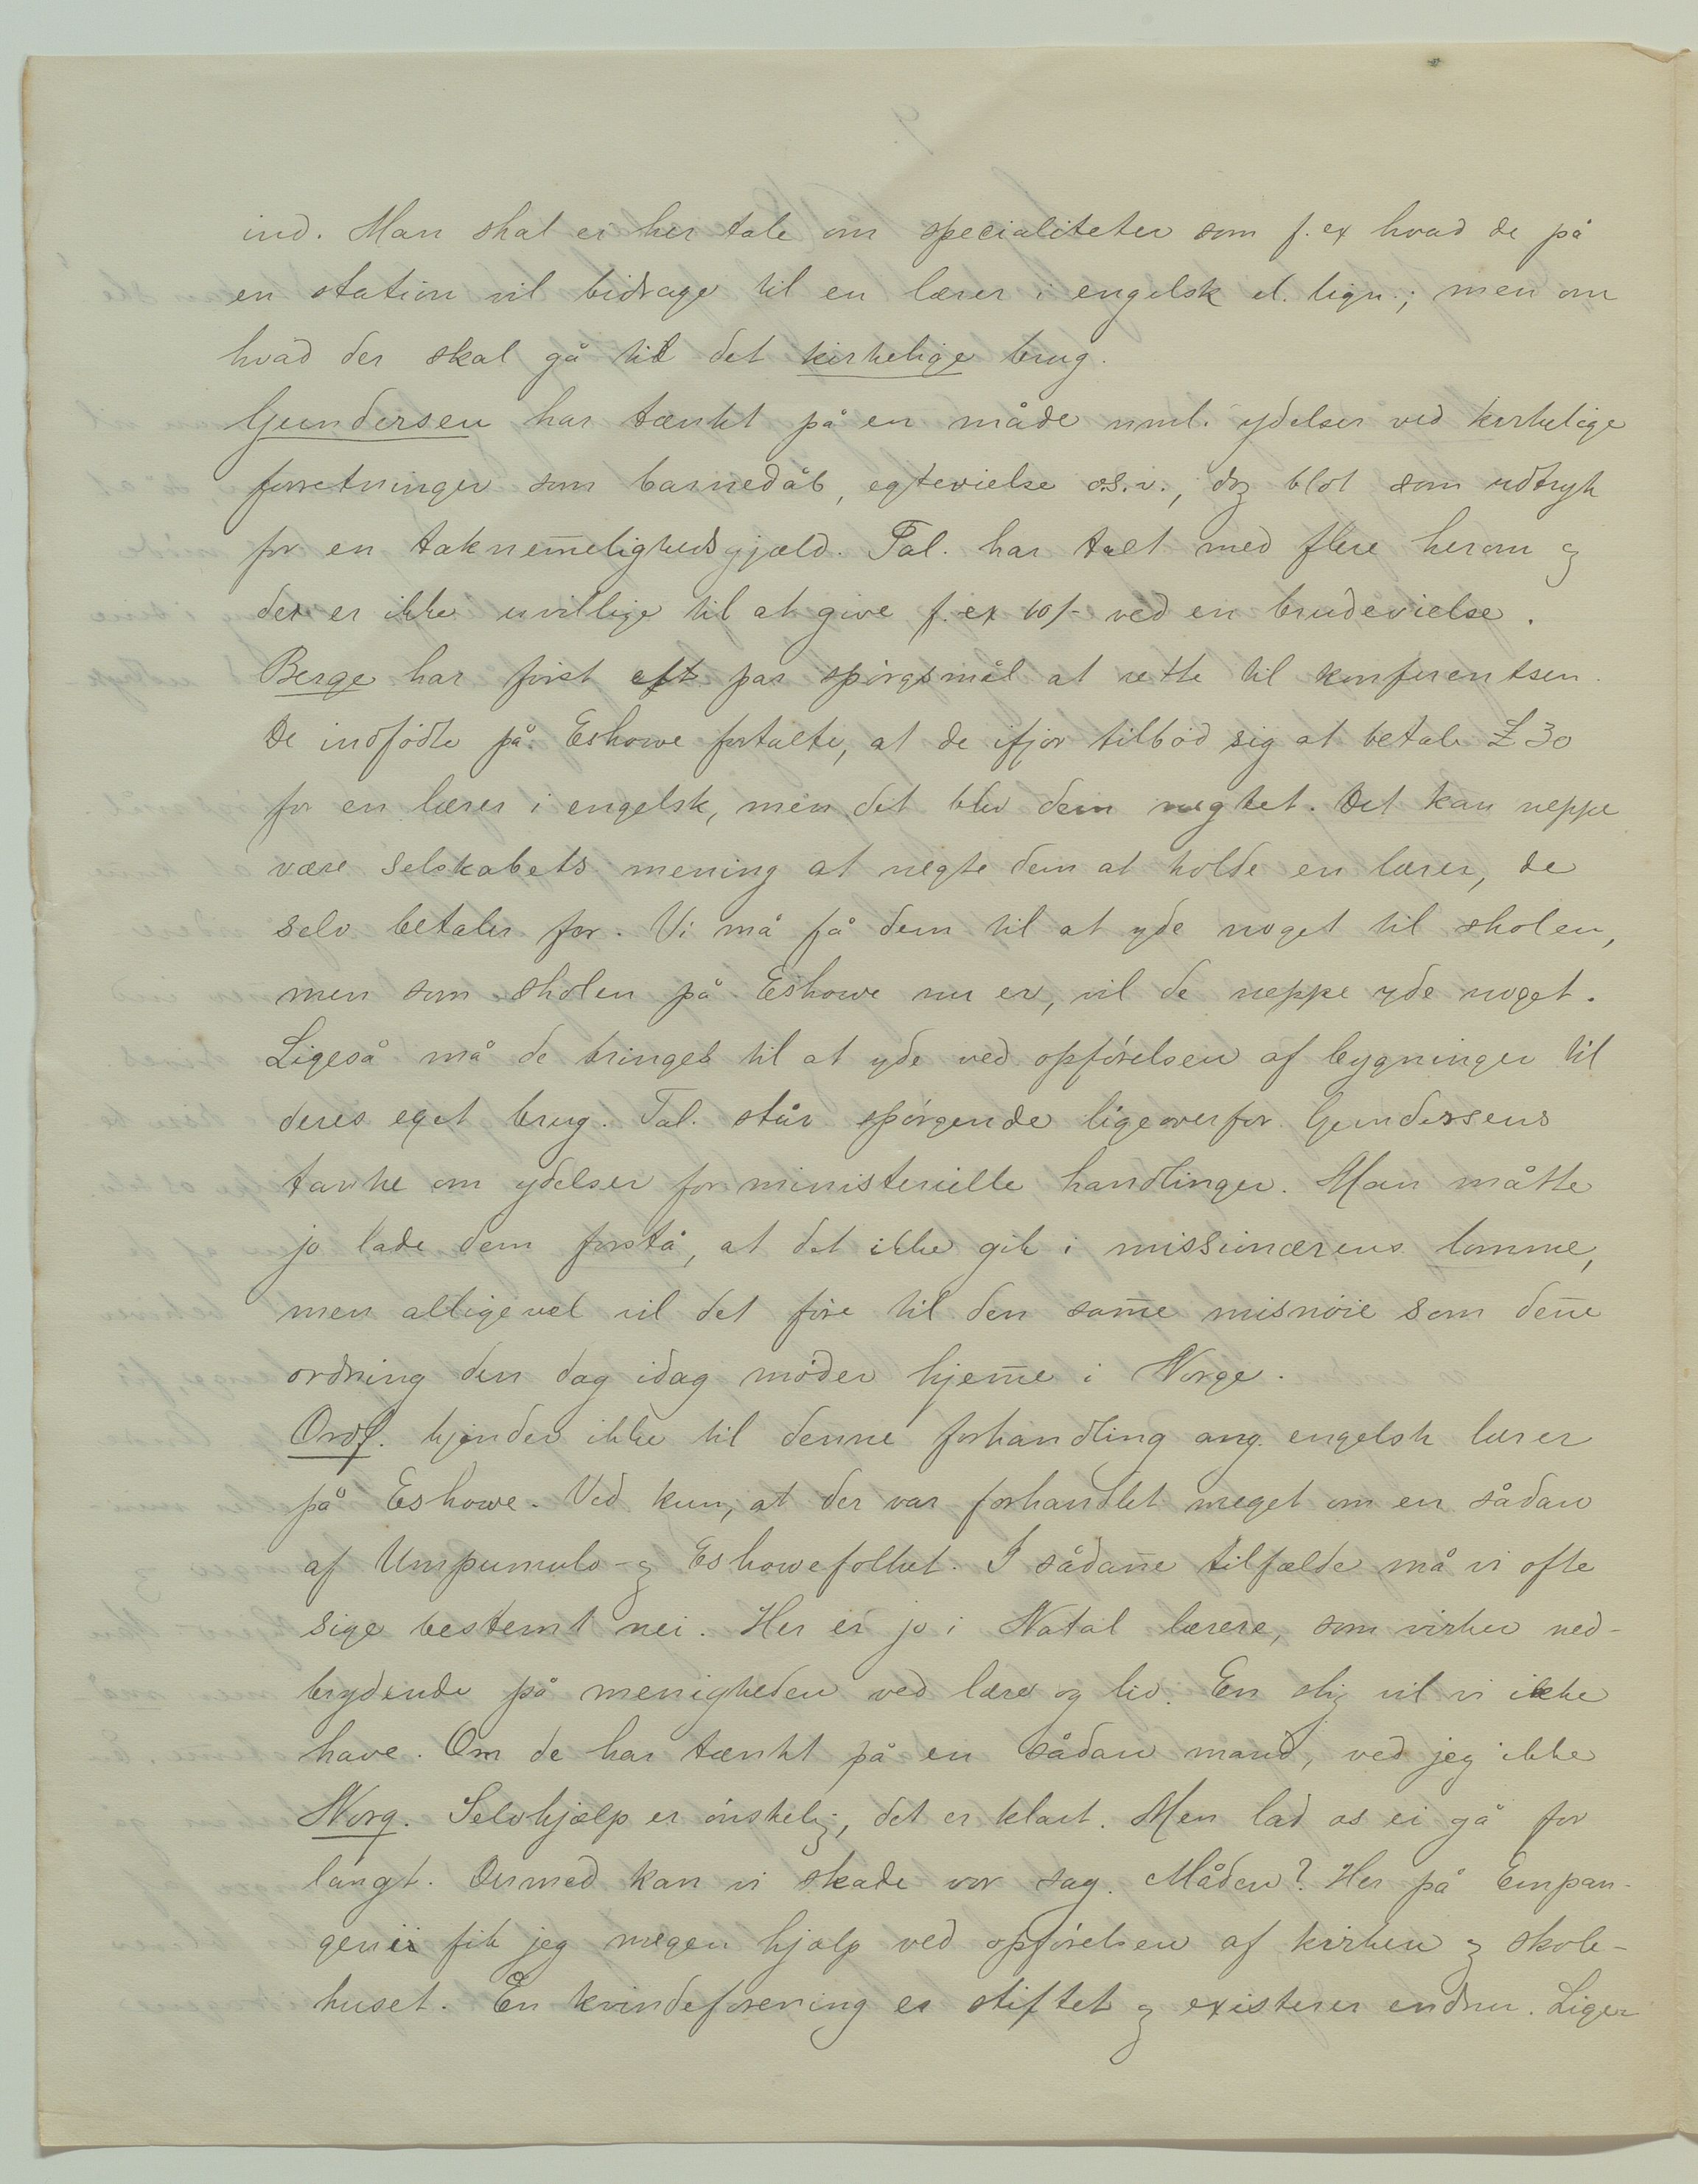 ind. Man skal ei her tale om specialiteter som f. ex hvad de på
en station vil bidrage til en lærer i engelsk el. lign.; men om
hvad der skal gå til det kirkelige brug.
Gundersen har tænkt på en måde nml. ydelser ved kirkelige
forretninger som barnedåb, egtevielse o.s.v., dog blot som udtryk
for en taknem̅elighedsgjæld. Tal. har talt med flere herom og
der er ikke uvillige til at give f. ex 10/- ved en brudevielse.
Berge har først et par spørgsmål at rette til konferentsen.
De indfødte på Eshowe fortalte, at de ifjor tilbød sig at betale £ 30
for en lærer i engelsk, men det blev dem negtet. Det kan neppe
være selskabets mening at negte dem at holde en lærer, de
selv betaler for. Vi må få dem til at yde noget til skolen,
men som skolen på Eshowe nu er, vil de neppe yde noget.
Ligeså må de bringes til at yde ved opførelsen af bygninger til
deres eget brug. Tal. står spørgende ligeoverfor Gundersens
tanke om ydelser for ministerielle handlinger. Man måtte
jo lade dem forstå, at det ikke gik i missionærens lomme,
men alligevel vil det føre til den sam̅e misnøie som den̅e
ordning den dag idag møder hjem̅e i Norge.
Ordf. kjender ikke til denne forhandling ang. engelsk lærer
på Eshowe. Ved kun, at der var forhandlet meget om en sådan
af Umpumulo- og Eshowefolket. I sådan̅e tilfælde må vi ofte
sige bestemt nei. Her er jo i Natal lærere, som virker ned-
brydende på menigheden ved lære og liv. En slig vil vi ikke
have. Om de har tænkt på en sådan mand, ved jeg ikke
Norg. Selvhjælp er ønskelig, det er klart. Men lad os ei gå for
langt. Dermed kan vi skade vor sag. Måden? Her på Empan-
geni fik jeg megen hjælp ved opførelsen af kirken og skole-
huset. En kvindeforening er stiftet og existerer endnu. Liger